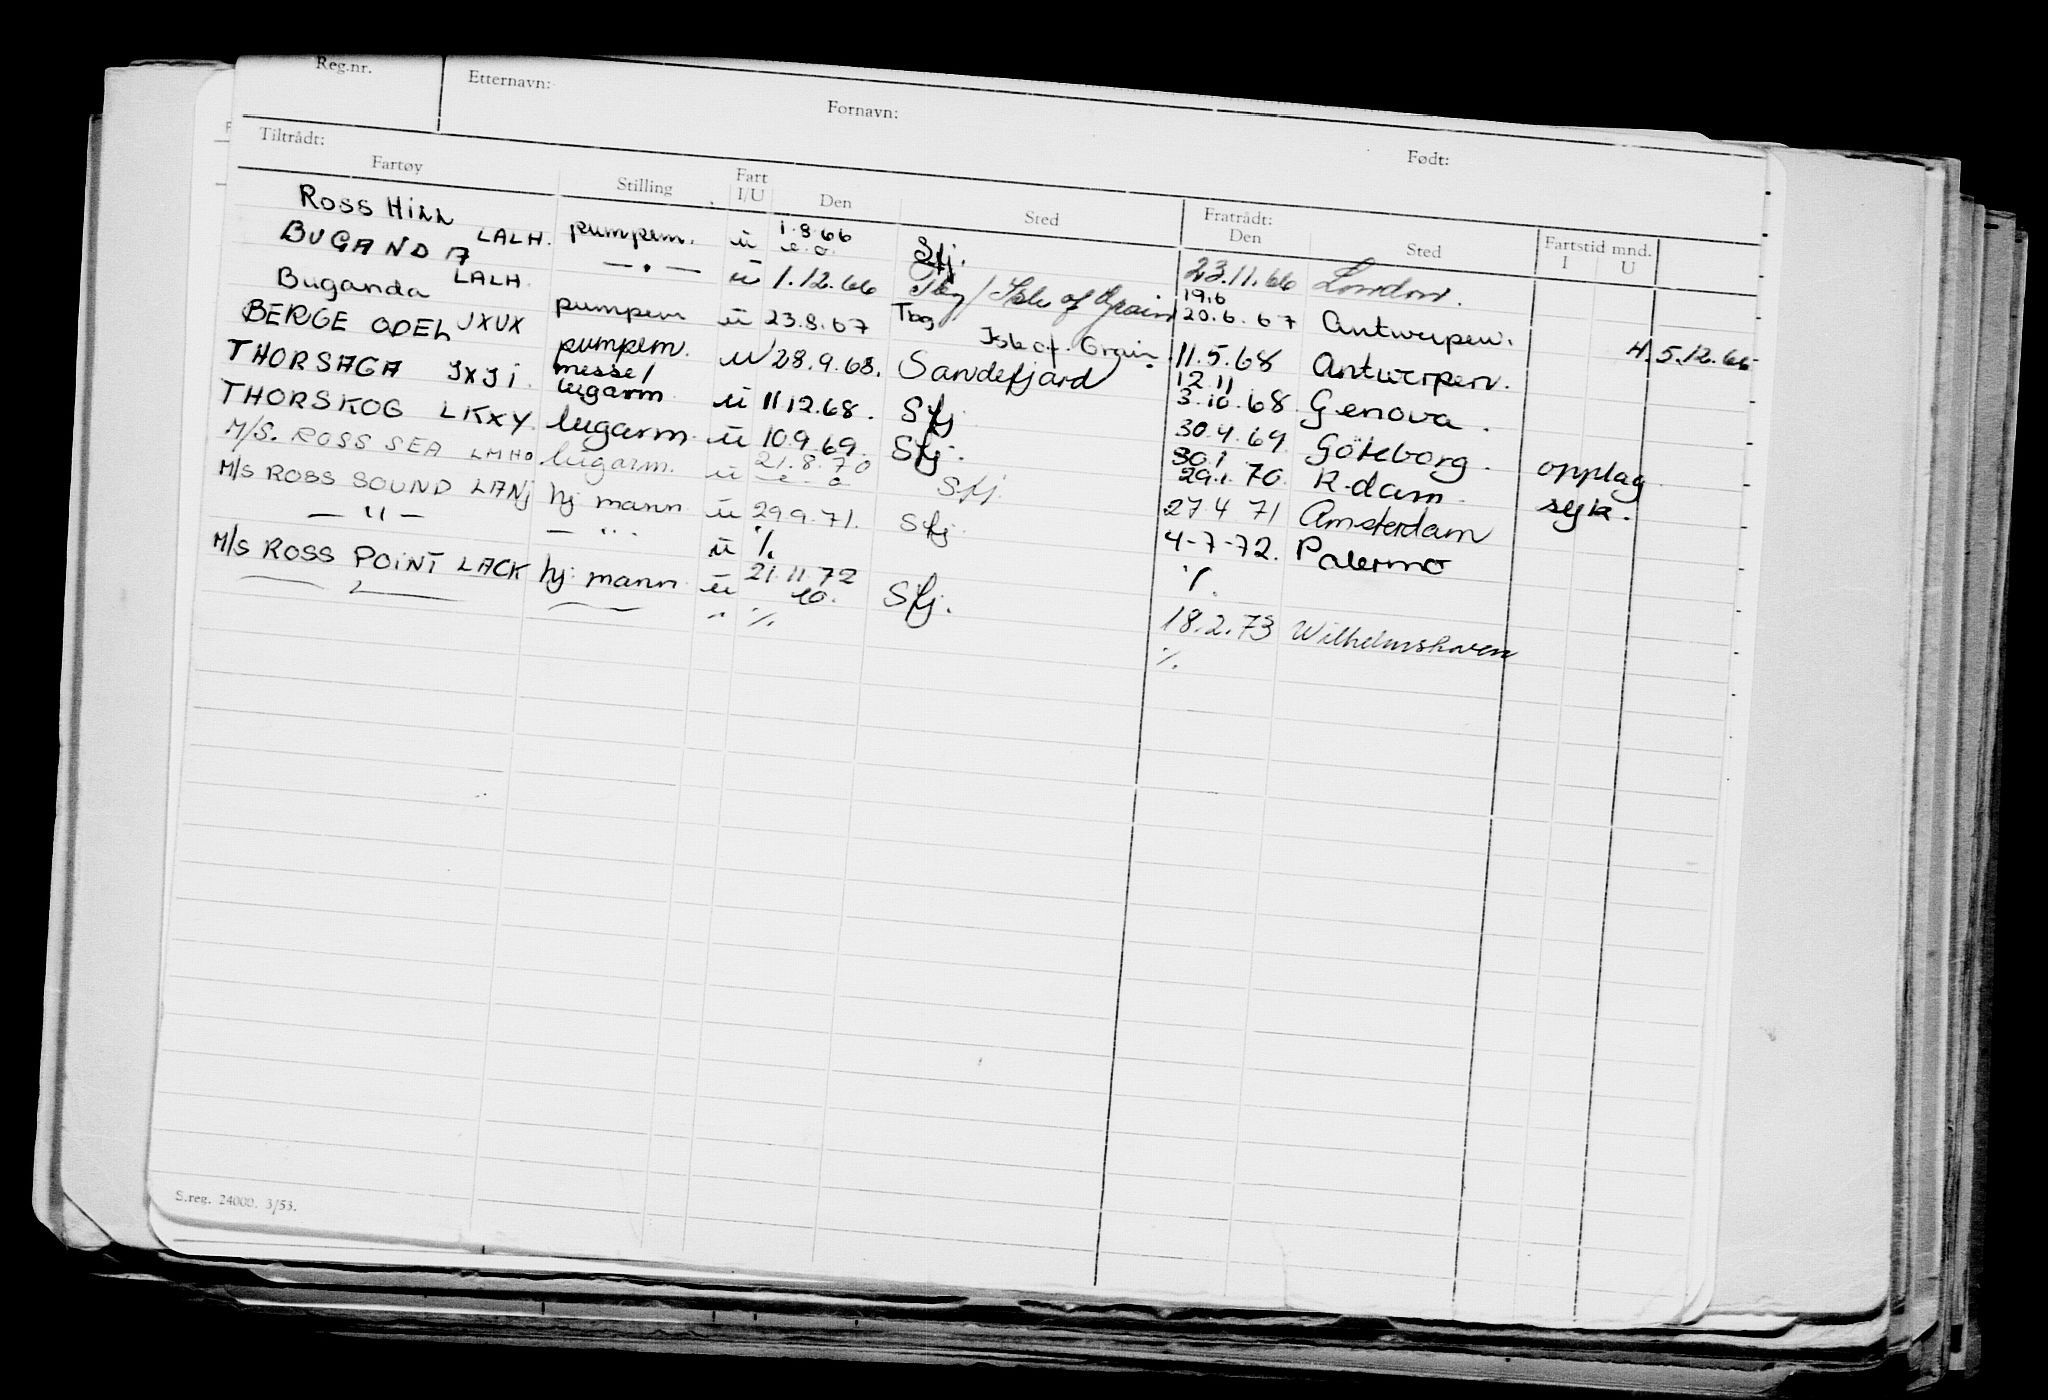 Reg.nr. Etternavn: Fornavn: Født:
Tiltrådt: Fratrådt:
Fartøy Stilling Fart I/U Den Sted Den Sted Fartstid mnd. I U
ROSS HILL LALH. pumpem. u 1.8.66 e.o. Sfj. 23.11.66 London.
BUGANDA LALH. — " — u 1.12.66 Tbg / Isle of Grain 19.6 20.6.67 Antwerpen. H. 5.12.66
Buganda pumpem u 23.8.67 Tbg Isle of Grain. 11.5.68 Antwerpen.
BERGE ODEL JXUX pumpem. u 28.9.68. Sandefjord 12.11 3.10.68 Genova.
THORSAGA JXJI. messe/ lugarm u 11 12.68. Sfj 30.4.69 Göteborg. opplag
THORSKOG LKXY lugarm. u 10.9.69. Sfj. 30.1 29.1.70. R.dam. syk.
M/S. ROSS SEA LMHO lugarm. u 21.8.70 e.o Sfj. 27.4 71 Amsterdam
M/S ROSS SOUND LANJ hj. mann u 29.9.71. Sfj 4-7-72. Palermo
— " — — " u ./. ./.
M/S ROSS POINT LACK hj. mann. u 21.11.72 10. Sfj. 18.2.73 Wilhelmshaven
" ./. ./.
S.reg. 24000. 3/53.